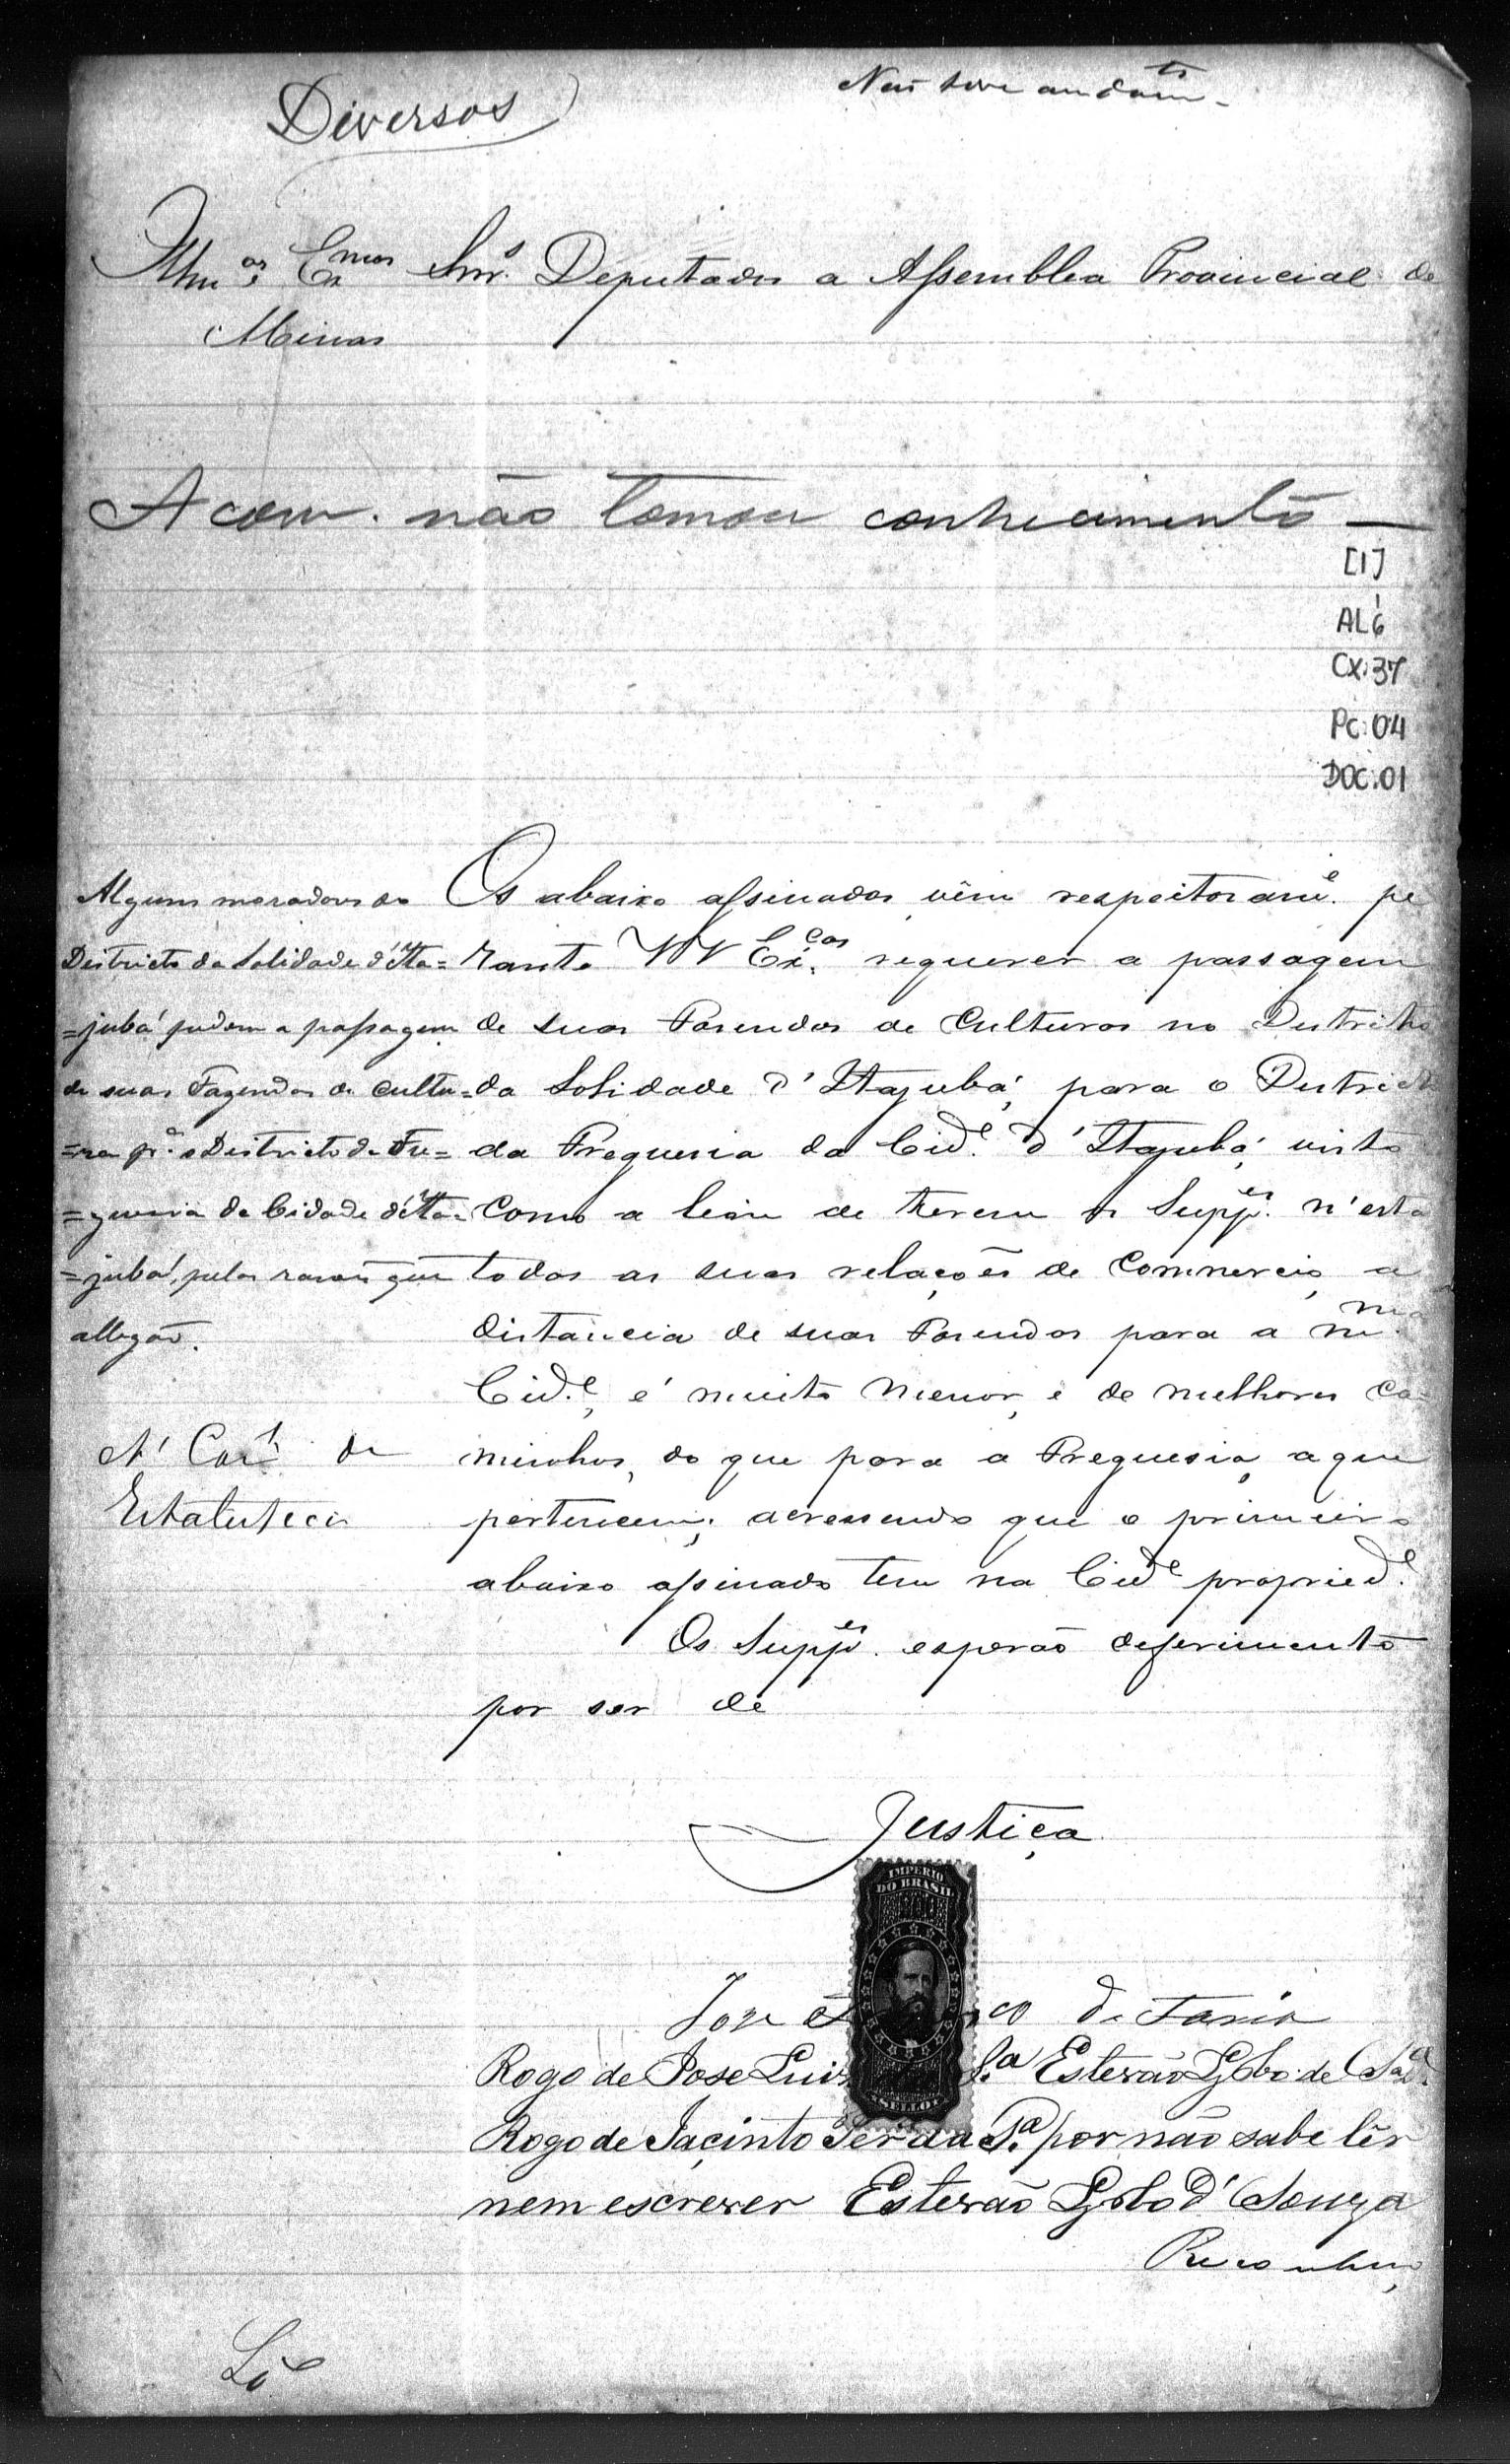 Diversos
Não teve andam.to
Illm.os Ex.mos Snr.s Deputados a Assemblea Provincial de
Minas
A com. não tomou conhecimento —
[1]
AL 6
CX: 37
PC: 04
DOC. 01
Alguns moradores do
Districto da Solidade d'Ita=
=jubá pedem a passagem
de suas Fazendas de cultu=
=ra p.a o Districto da Fre=
=guesia da Cidade d'Ita=
=jubá, pelas rasoes que
allegão.
A' Com. de
Estatistica
Os abaixo assinados, vêm respeitosam.e pe
rante VV Ex.cas requerer a passagem
de suas Fasendas de Culturas no Districto
da Solidade d'Itajubá, para o Districto
da Freguesia da Cid.e d'Itajubá, visto
como a lem de terem os Supp.es n'esta
todas as suas relações de Commercio, a
distancia de suas Fasendas para a m.ma
Cid.e, é muito menor, e de melhores ca
minhos, do que para a Freguesia, a que
pertencem; acressendo que o primeiro
abaixo assinado tem na Cid.e propried.e
Os Supp.es esperão deferimento
por ser de
Justiça
IMPERIO
DO BRASIL
SELLO
Jose co de Faria
Rogo de Jose Luis S.a Estevão Lobo de
Rogo de Jacinto da S.a por não sabe lêr
nem escrever Estevão Lobo d'Souza
Reconheço